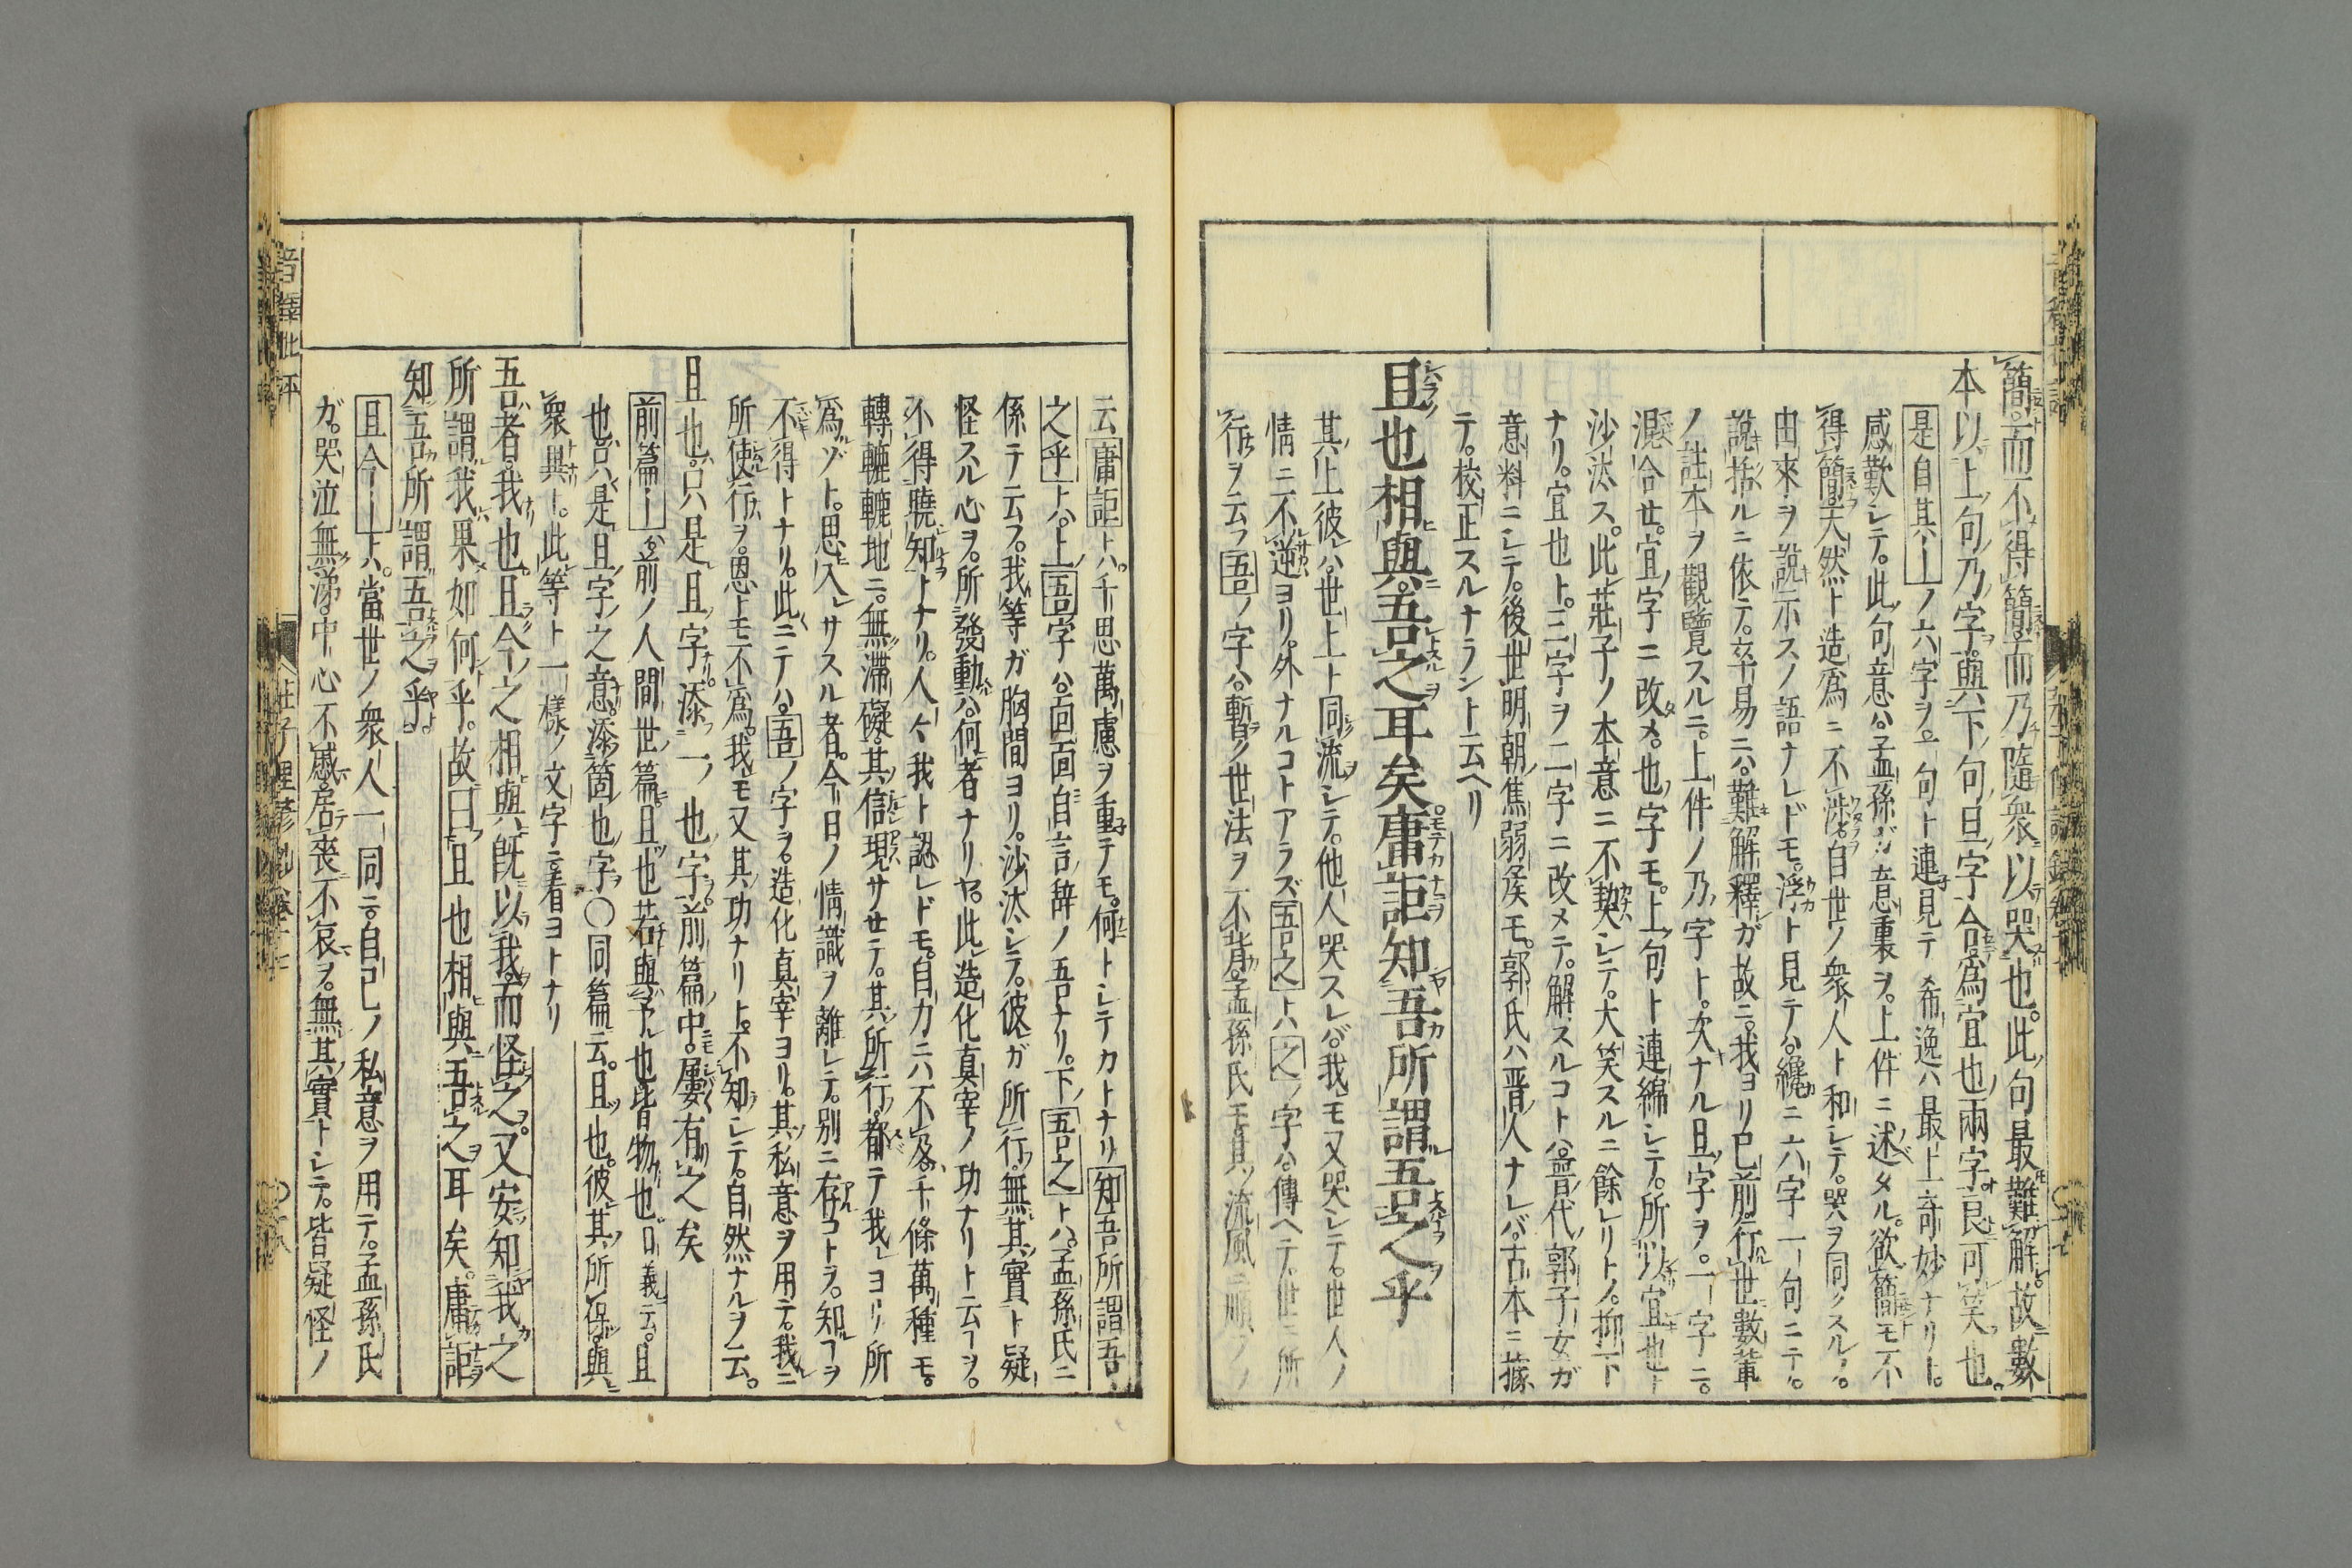 簡而不得簡而乃隨衆以哭也此句最難解故數
本以上句乃字與下句且字合爲宜也兩字良可笑也
是自其〡ノ六字ヲ一句ト連見テ希逸ハ最上奇妙ナリト
感歎シテ此句意ハ孟孫ガ意裏ヲ上件ニ述タル欲簡モ不
得簡天然ト造爲ニ不渉自世ノ衆人ト和シテ哭ヲ同クスルノ
由來ヲ說示スノ語ナレドモ浮ト見テハ纔ニ六字一句ニテ
說括ルニ依テ卒易ニハ難解釋ガ故ニ我ヨリ已前行世數輩
ノ註本ヲ觀覽スルニ上件ノ乃字ト次ナル且字ヲ一字ニ
混合セ宜字ニ改メ也字モ上句ト連綿シテ所以宜也ト
沙汰ス此莊子ノ本意ニ不契シテ大笑スルニ餘レリトノ抑下
ナリ宜也ト三字ヲ二字ニ改メテ解スルコトハ晋代郭子女ガ
意料ニシテ後世明朝焦弱矦モ郭氏ハ晋人ナレバ古本ニ據
テ校正スルナラント云ヘリ
且也相與吾之耳矣庸詎知吾所謂吾之乎
其上彼ハ世上ト同流シテ他人哭スレバ我モ又哭シテ世人ノ
情ニ不逆ヨリ外ナルコトアラズ吾之トハ之ノ字ハ傳ヘテ世ニ所
行ヲ云フ吾ノ字ハ暫ク世法ヲ不背孟孫氏モ其流風ニ順フノ
云庸詎トハ千思萬慮ヲ重テモ何トシテカトナリ知吾所謂吾
之乎トハ上吾字ハ回面自言辞ノ吾ナリ下吾之トハ孟孫氏ニ
係テ云フ我等ガ胸間ヨリ沙汰シテ彼ガ所行無其實ト疑
怪スル心ヲ所發動ハ何者ナリヤ此造化真宰ノ功ナリト云フヲ
不得曉知トナリ人々我ト認レドモ自力ニハ不及千條萬種モ
轉轆轆地ニ無滯礙其信現サセテ其所行都テ我レヨリ所
爲ゾト思入レサスル者今日ノ情識ヲ離レテ別ニ存コトヲ知フヲ
不得トナリ此ニテハ吾ノ字ヲ造化真宰ヨリ其私意ヲ用テ我ニ
所使行ヲ思トモ不爲我モ又其功ナリト不知シテ自然ナルヲ云
且也只是且字添一也字前篇中屢有之矣
前篇〡ハ前ノ人間世篇且也若與予也皆物也口義云且
也只是且字之意添箇也字〇同篇云且也彼其所保與
衆異ト此等ト一樣ノ文字ニ看ヨトナリ
吾者我也且今之相與旣以我而怪之又安知我之
所謂我果如何乎故曰且也相與吾之耳矣庸詎
知吾所謂吾之乎
且今〡トハ當世ノ衆人一同ニ自己ノ私意ヲ用テ孟孫氏
ガ哭泣無涕中心不慼居喪不哀ヲ無其實トシテ皆疑怪ノ